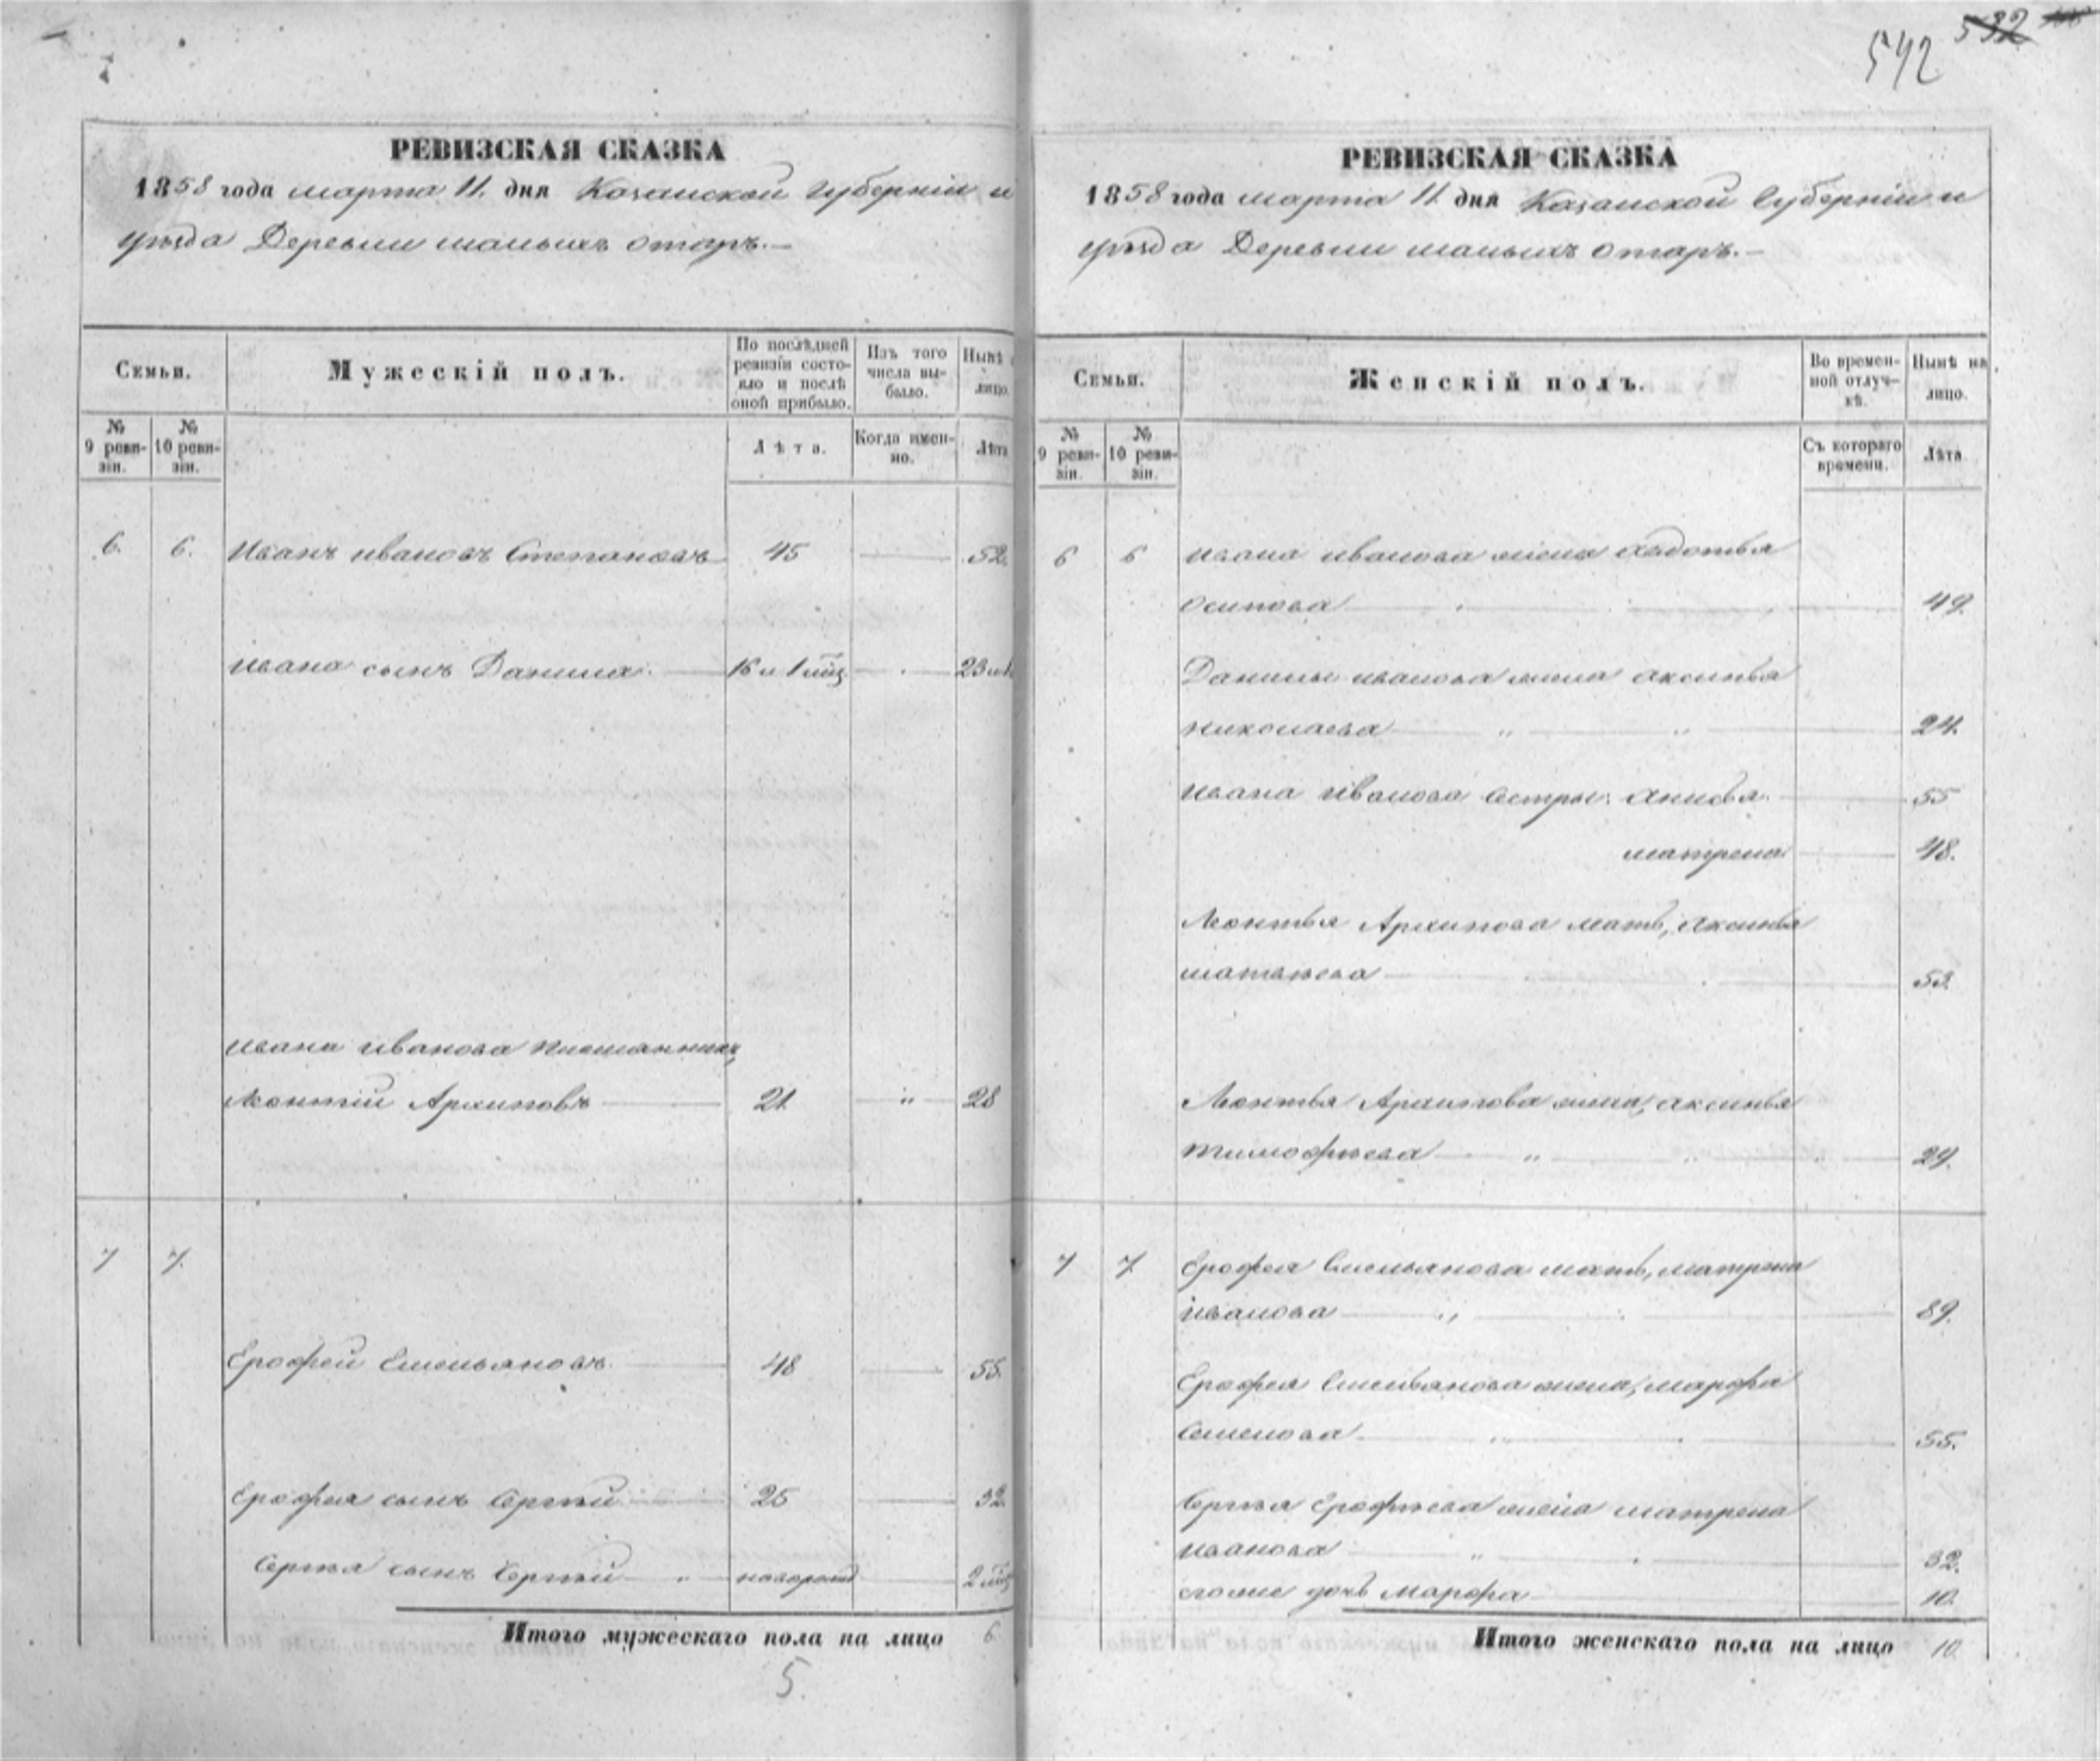 542 532
РЕВИЗСКАЯ СКАЗКА
1858 года марта 11. дня Казанской губерніи и
уѣзда Деревни малыхъ отаръ.—
Семьи.
Мужескій полъ.
По послѣдней ревизіи состояло и послѣ оной прибыло.
Изъ того числа выбыло.
Нынѣ
лицо.
№ 9 ревизіи.
№ 10 ревизіи.
Лѣта.
Когда именно.
Лѣта
6. 6. Иванъ Ивановъ Степановъ 45 52.
Ивана сынъ Данила. 16 и 1 мѣс 23
Ивана Иванова племянникъ,
Леонтій Архиповъ 21 " 28
7 7.
Ерофей Емельяновъ. 48 55.
Ерофея сынъ Сергѣй 25 32.
Сергѣя сынъ Сергѣй " новорожд 2 мѣс
Итого мужескаго пола на лицо 6.
5.
РЕВИЗСКАЯ СКАЗКА
1858 года марта 11. дня Казанской Губерніи и
уѣзда Деревни малыхъ отаръ.—
Семьи.
Женскій полъ.
Во временной отлучкѣ.
Нынѣ на лицо.
№ 9 ревизіи.
№ 10 ревизіи.
Съ котораго времени.
Лѣта
6 6 Ивана Иванова жена Авдотья
Осипова 49.
Данилы Иванова жена Аксинья
Николаева " " 24.
Ивана Иванова Сестры: Анисья. 55
Матрена. 48.
Леонтья Архипова мать, Аксинья
Матвѣева 53.
Леонтья Архипова жена, Аксинья
Тимофѣева " " 29.
7 7. Ерофея Емельянова мать, Матрена
Иванова " 89.
Ерофея Емельянова жена, Марфа
Семенова 55.
Сергѣя Ерофѣева жена Матрена
Иванова " 32.
дочь Марфа 10.
Итого женскаго пола на лицо 10.